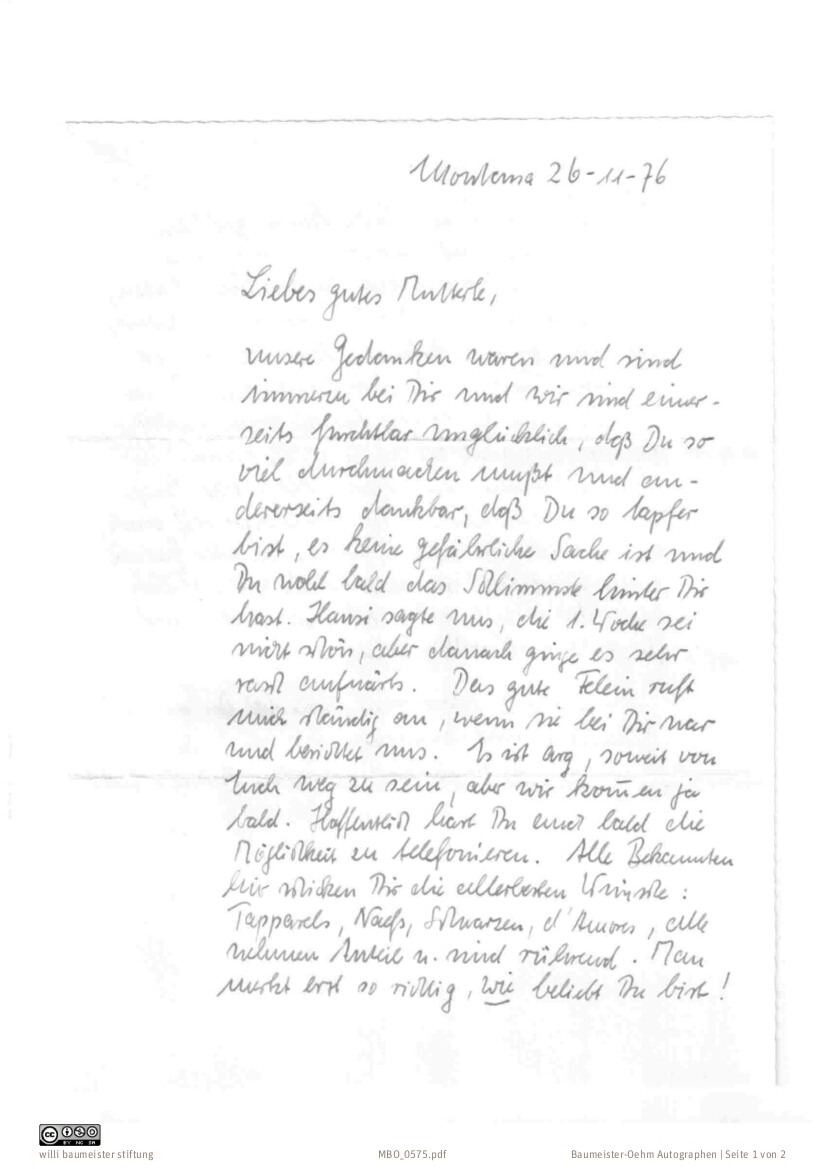 Montana 26-11-76
Liebes gutes Mutterle,
unsere Gedanken waren und sind
immerzu bei Dir und wir sind einer-
seits furchtbar unglücklich, daß Du so
viel durchmachen mußt und an-
dererseits dankbar, daß Du so tapfer
bist, es keine gefährliche Sache ist und
Du wohl bald das Schlimmste hinter Dir
hast. Hansi sagte uns, die 1. Woche sei
nicht schön, aber danach ginge es sehr
rasch aufwärts. Das gute Felein ruft
mich ständig an, wenn sie bei Dir war
und berichtet uns. Es ist arg, soweit von
Euch weg zu sein, aber wir kom̄en ja
bald. Hoffentlich hast Du auch bald die
Möglichkeit zu telefonieren. Alle Bekannten
hier schicken Dir die allerbesten Wünsche:
Tapparels, Naefs, Schwarzen, d'Amores, alle
nehmen Anteil u. sind rührend. Man
merkt erst so richtig, wie beliebt Du bist!
CC BY NC SA
willi baumeister stiftung
MBO_0575.pdf
Baumeister-Oehm Autographen | Seite 1 von 2